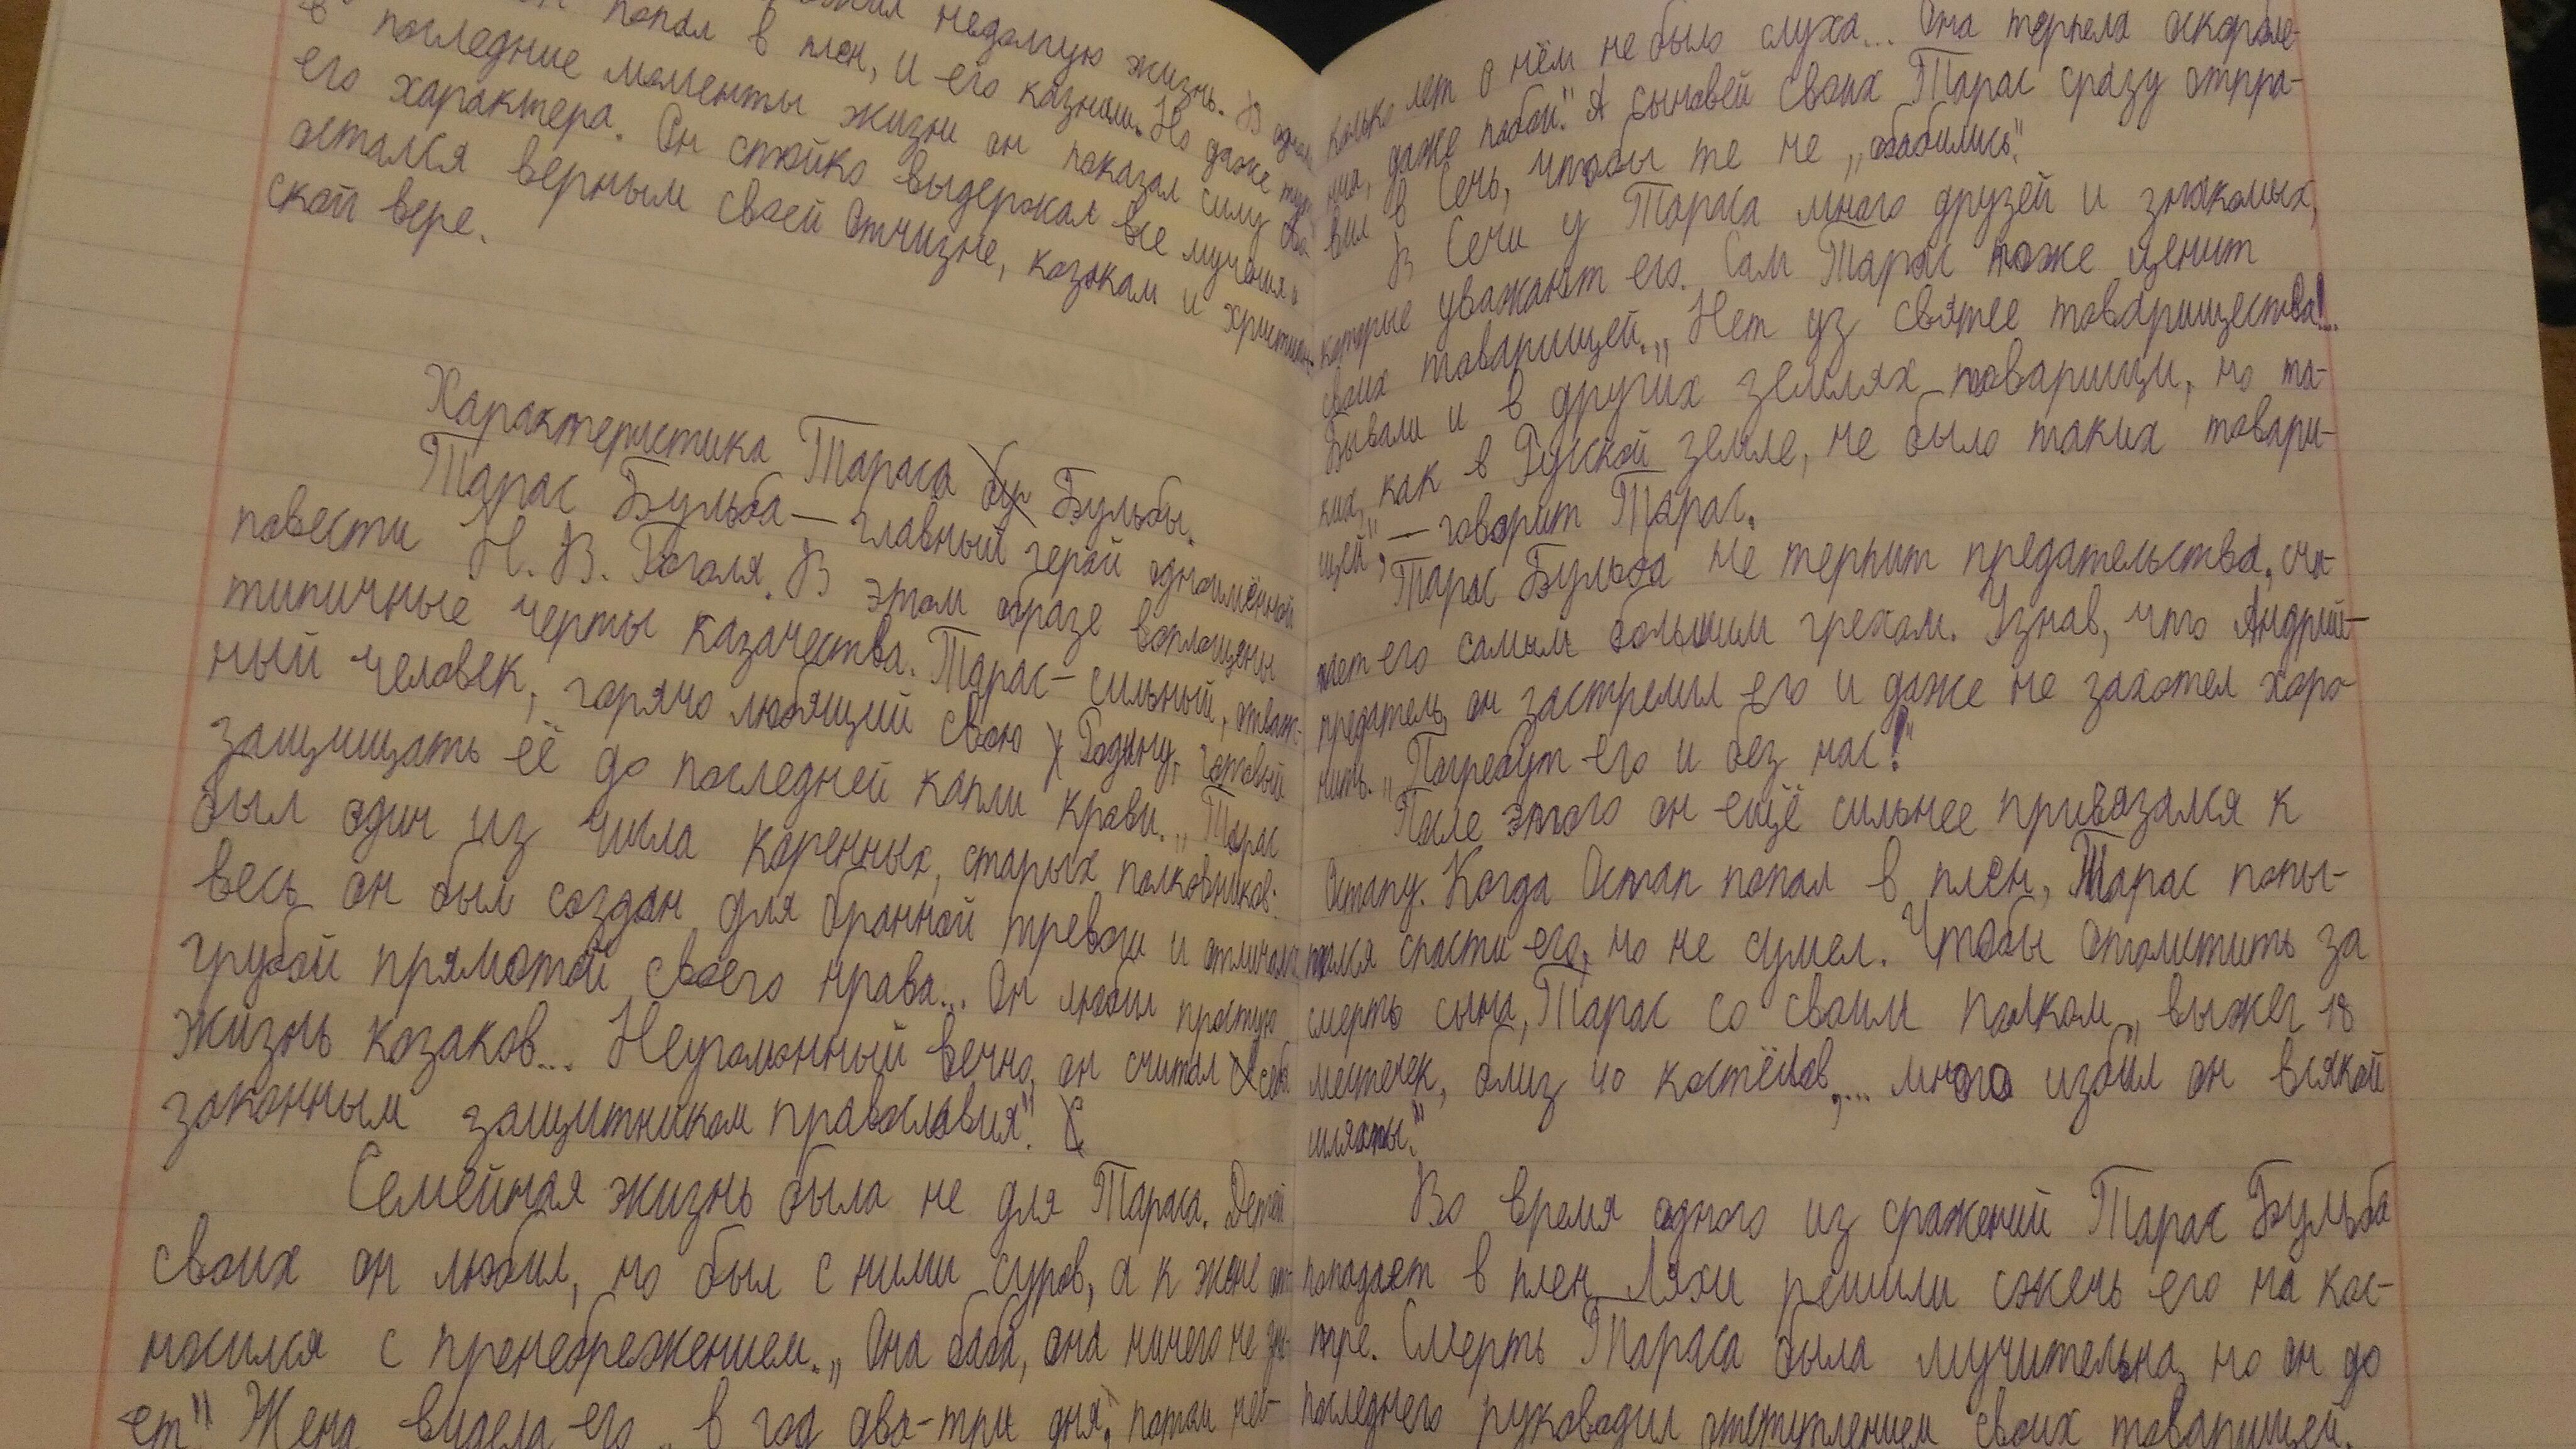 недолгую жизнь. В одном
попал в плен, и его казнили. Но даже
в последние моменты жизни он показал силу
его характера. Он стойко выдержал все мучения и
остался верным своей Отчизне, козакам и христиан-
ской вере.
Характеристика Тараса Бульбы.
Тарас Бульба — главный герой одноимённой
повести Н. В. Гоголя. В этом образе воплощены
типичные черты казачества. Тарас — сильный, отваж-
ный человек, горячо любящий свою Родину, готовый
защищать её до последней капли крови. „Тарас
был один из числа коренных, старых полковников:
весь он был создан для бранной тревоги и отличался
грубой прямотой своего нрава... Он любил простую
жизнь козаков... Неугомонный вечно, он считал себя
законным защитником православия".
Семейная жизнь была не для Тараса. Детей
своих он любил, но был с ними суров, а к жене от-
носился с пренебрежением. „Она баба, она ничего не зна-
ет" Жена видела его „в год два-три дня, потом нес-
колько лет о нём не было слуха... Она терпела оскорбле-
ния, даже побои." А сыновей своих Тарас сразу отпра-
вил в Сечь, чтобы те не „обабились".
В Сечи у Тараса много друзей и знакомых,
которые уважают его. Сам Тарас тоже ценит
своих товарищей. „Нет уз святее товарищества!..
Бывали и в других землях товарищи, но та-
ких, как в Русской земле, не было таких товари-
щей", — говорит Тарас.
Тарас Бульба не терпит предательства, счи-
тает его самым большим грехом. Узнав, что Андрий —
предатель, он застрелил его и даже не захотел хоро-
нить. „Погребут его и без нас!"
После этого он ещё сильнее привязался к
Остапу. Когда Остап попал в плен, Тарас попы-
тался спасти его, но не сумел. Чтобы отомстить за
смерть сына, Тарас со своим полком „выжег 18
местечек, близ 40 костёлов,... много избил он всякой
шляхты."
Во время одного из сражений Тарас Бульба
попадает в плен. Ляхи решили сжечь его на кос-
тре. Смерть Тараса была мучительна, но он до
последнего руководил отступлением своих товарищей.